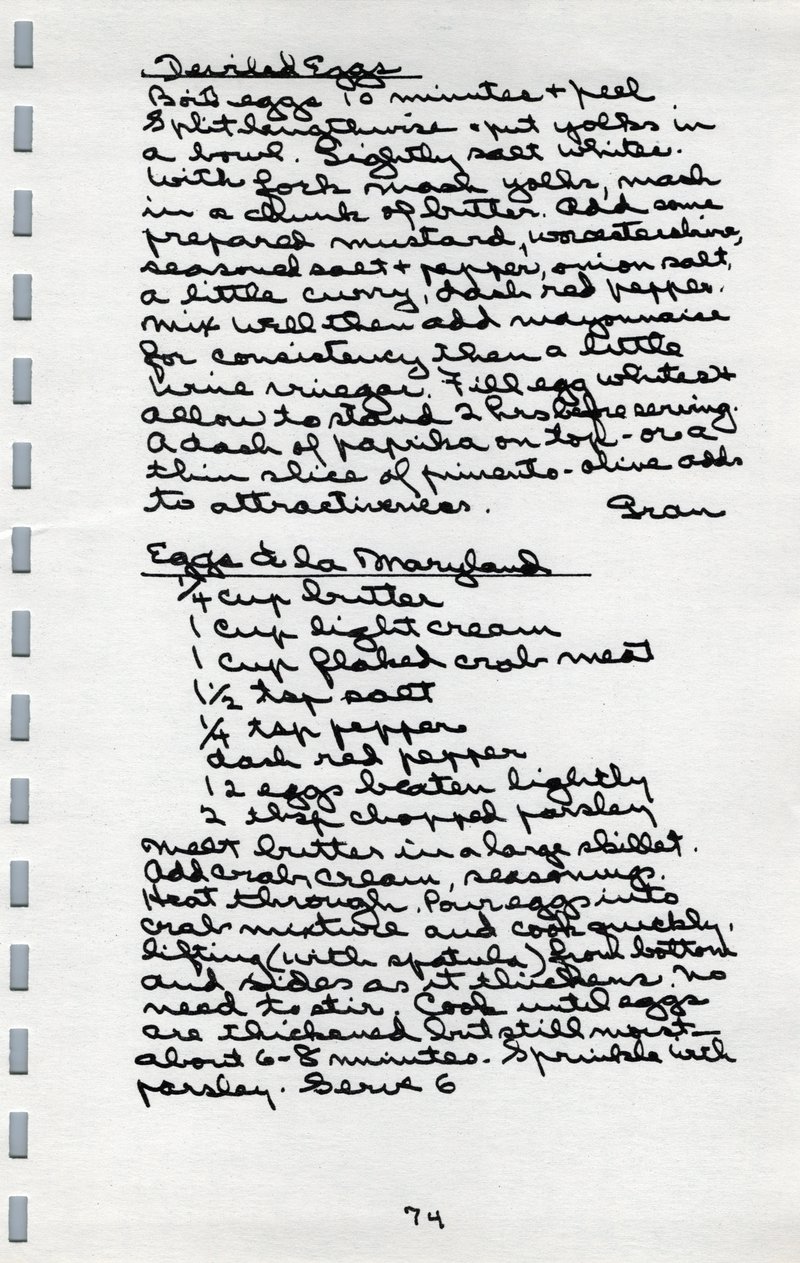 Deviled Eggs
Boil eggs 10 minutes + peel
Split lengthwise + put yolks in
a bowl. Lightly salt whites.
With fork mash yolks, mash
in a chunk of butter. Add some
prepared mustard, worcestershire,
seasoned salt + pepper, onion salt,
a little curry, dash red pepper.
Mix well then add mayonnaise
for consistency then a little
wine vinegar. Fill egg whites +
allow to stand 2 hrs before serving.
A dash of paprika on top - or a
thin slice of pimento-olive adds
to attractiveness. Gran
Eggs à la Maryland
1/4 cup butter
1 cup light cream
1 cup flaked crab meat
1 1/2 tsp salt
1/4 tsp pepper
dash red pepper
12 eggs beaten lightly
2 tbsp chopped parsley
Melt butter in a large skillet.
Add crab, cream, seasonings.
Heat through. Pour eggs into
crab mixture and cook quickly,
lifting (with spatula) from bottom
and sides as it thickens. No
need to stir. Cook until eggs
are thickened but still moist -
about 6-8 minutes. Sprinkle with
parsley. Serves 6
74